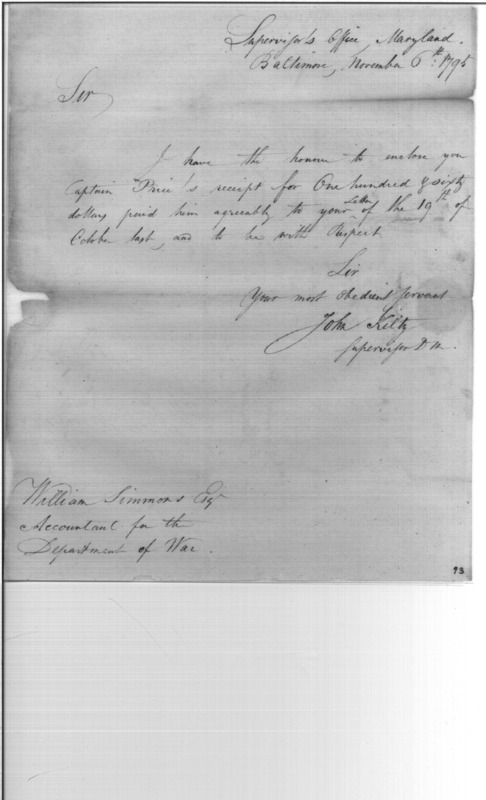 Supervisor's Office, Maryland.
Baltimore, November 6th: 1795
Sir
I have the honour to enclose you
Captain Price's receipt for One hundred & sixty
dollars paid him agreeably to your Letter of the 19th of
October last, and to be with Respect
Sir
Your most obedient servant
John Kilty
Supervisor D M.
William Simmons Esqr
Accountant for the
Department of War.
93